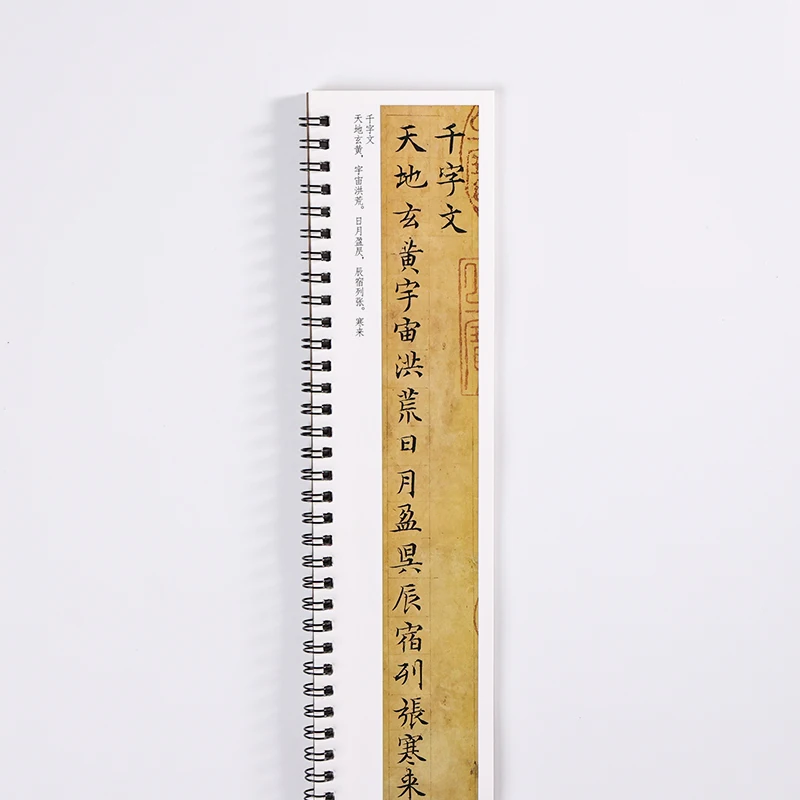 千字文
天地玄黄宇宙洪荒日月盈昃辰宿列張寒来
千字文
天地玄黄，宇宙洪荒。日月盈昃，辰宿列张。寒来